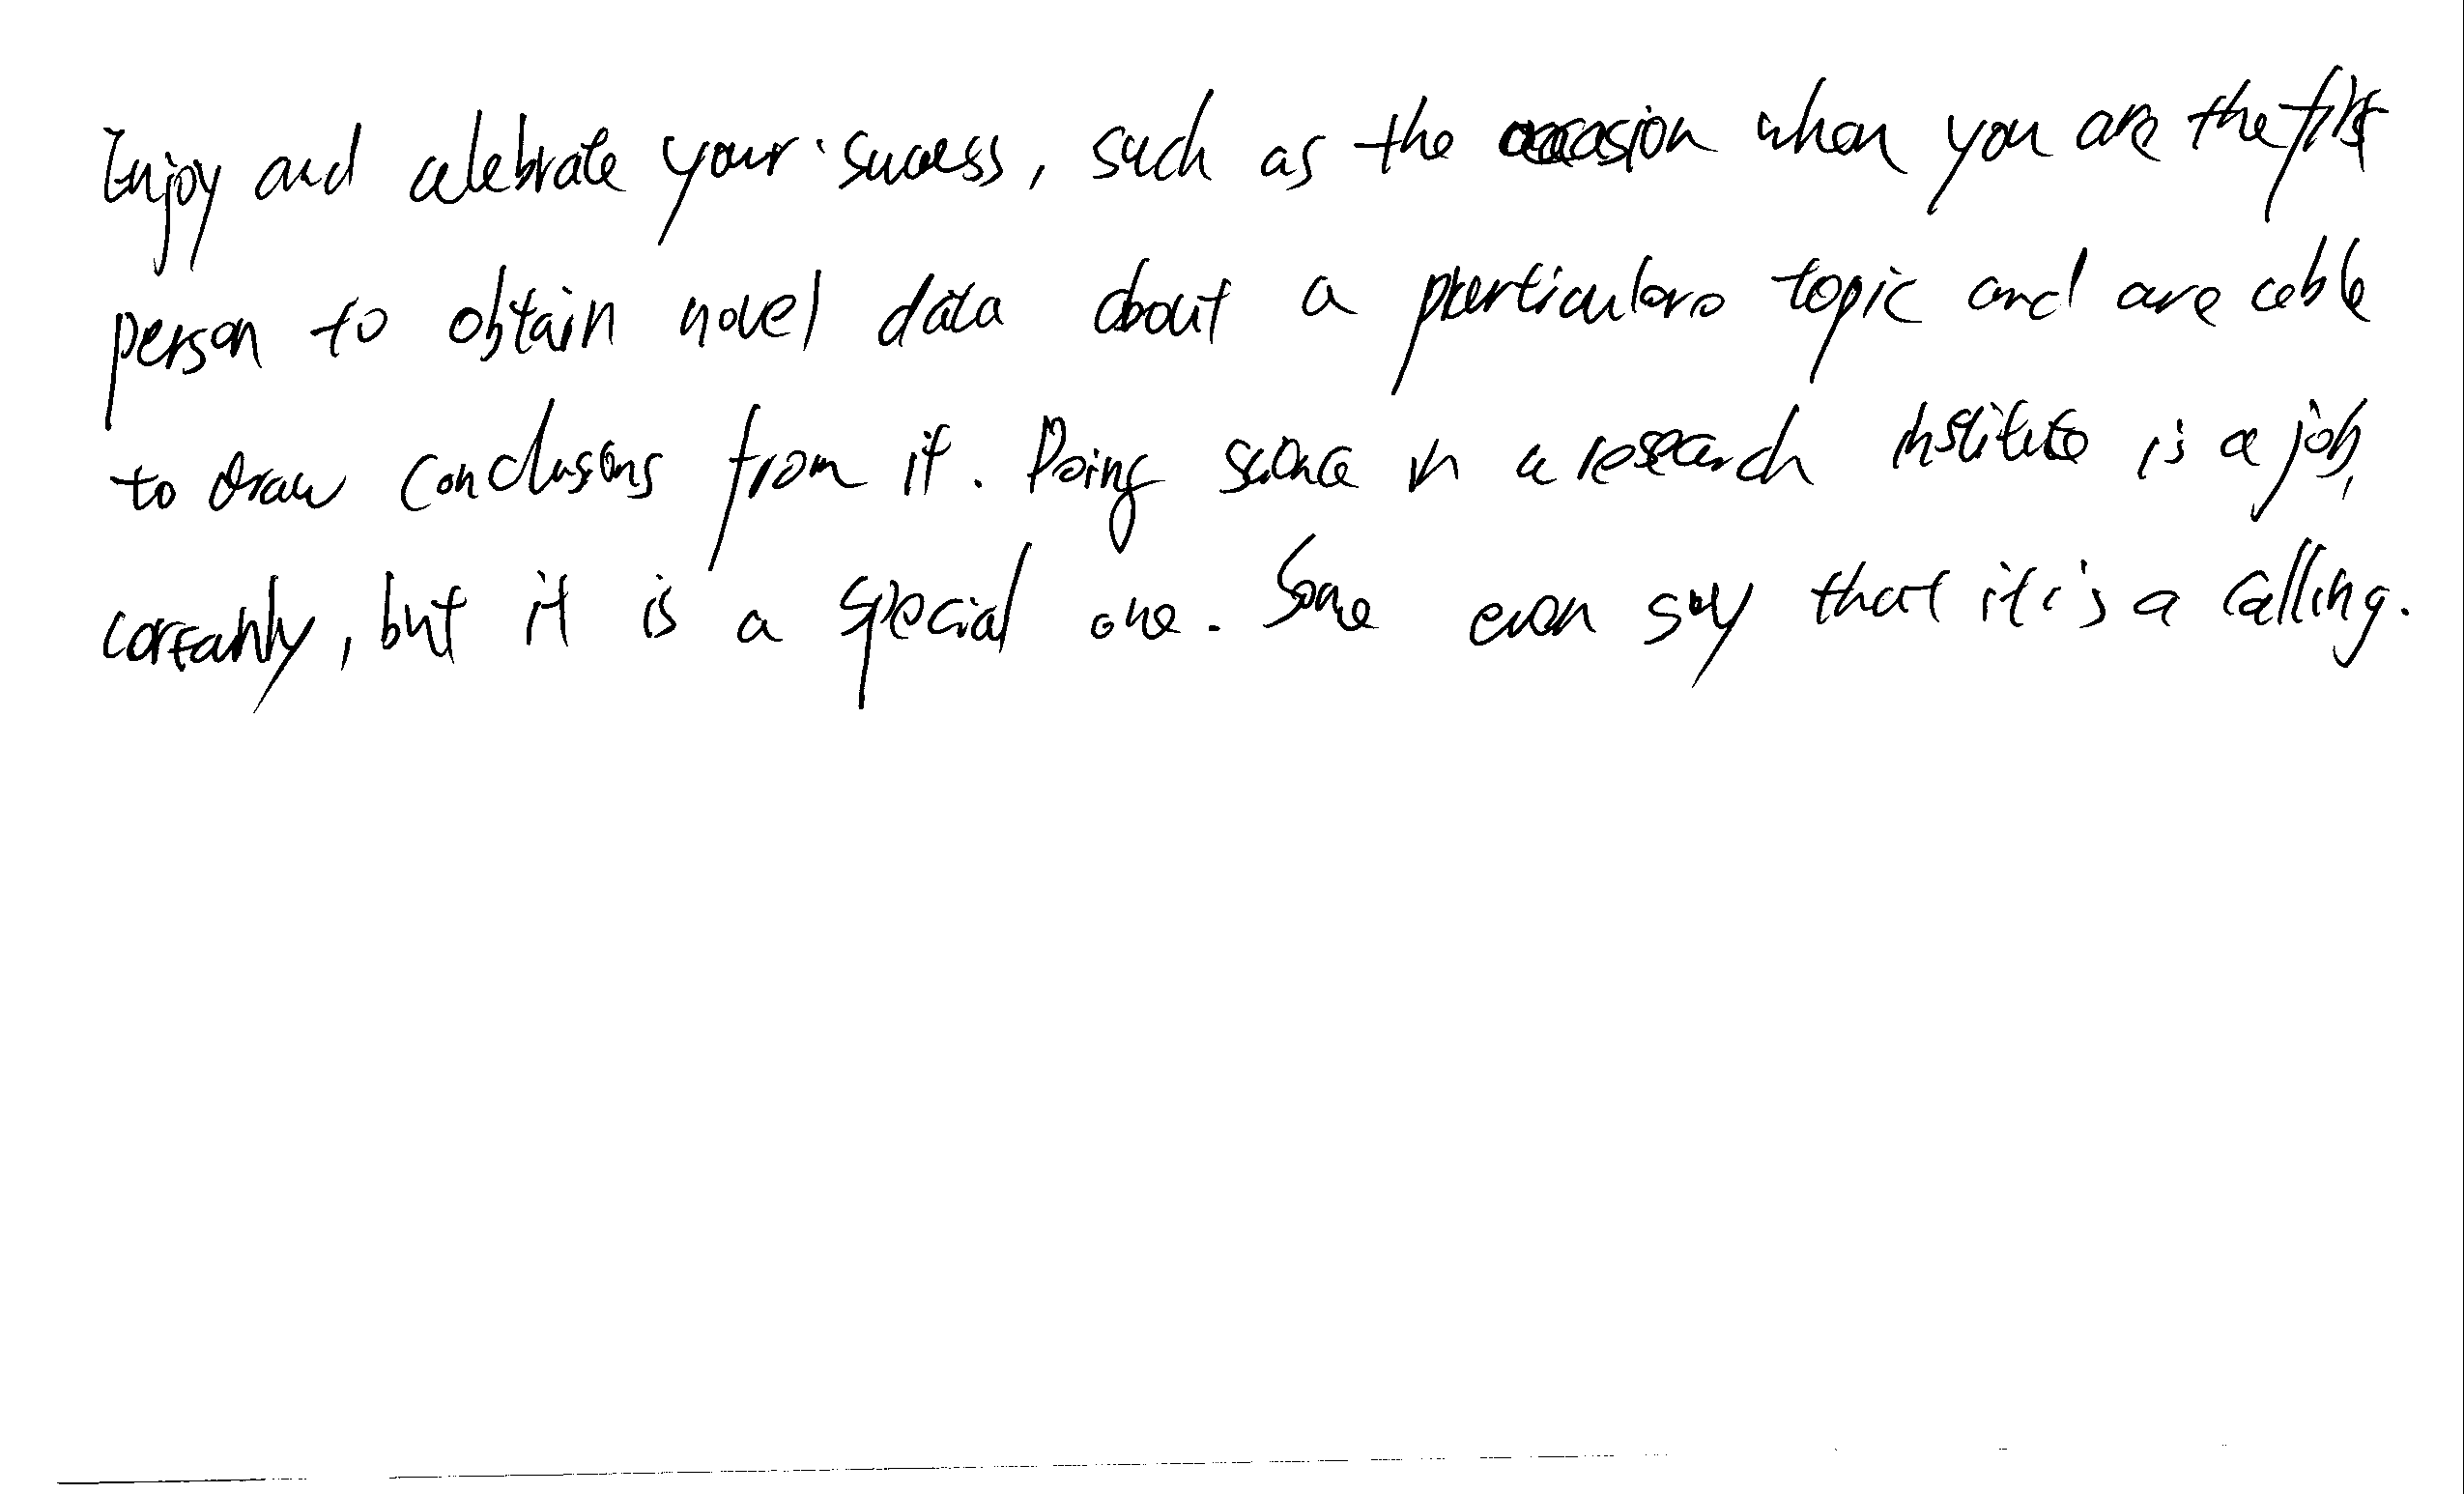 Enjoy and celebrate your success, such as the occasion when you are the first
person to obtain novel data about a particulars topic and are able
to draw conclusions from it. Doing science in a research institute is a job,
certainly, but it is a special one. Some even say that it is a calling.